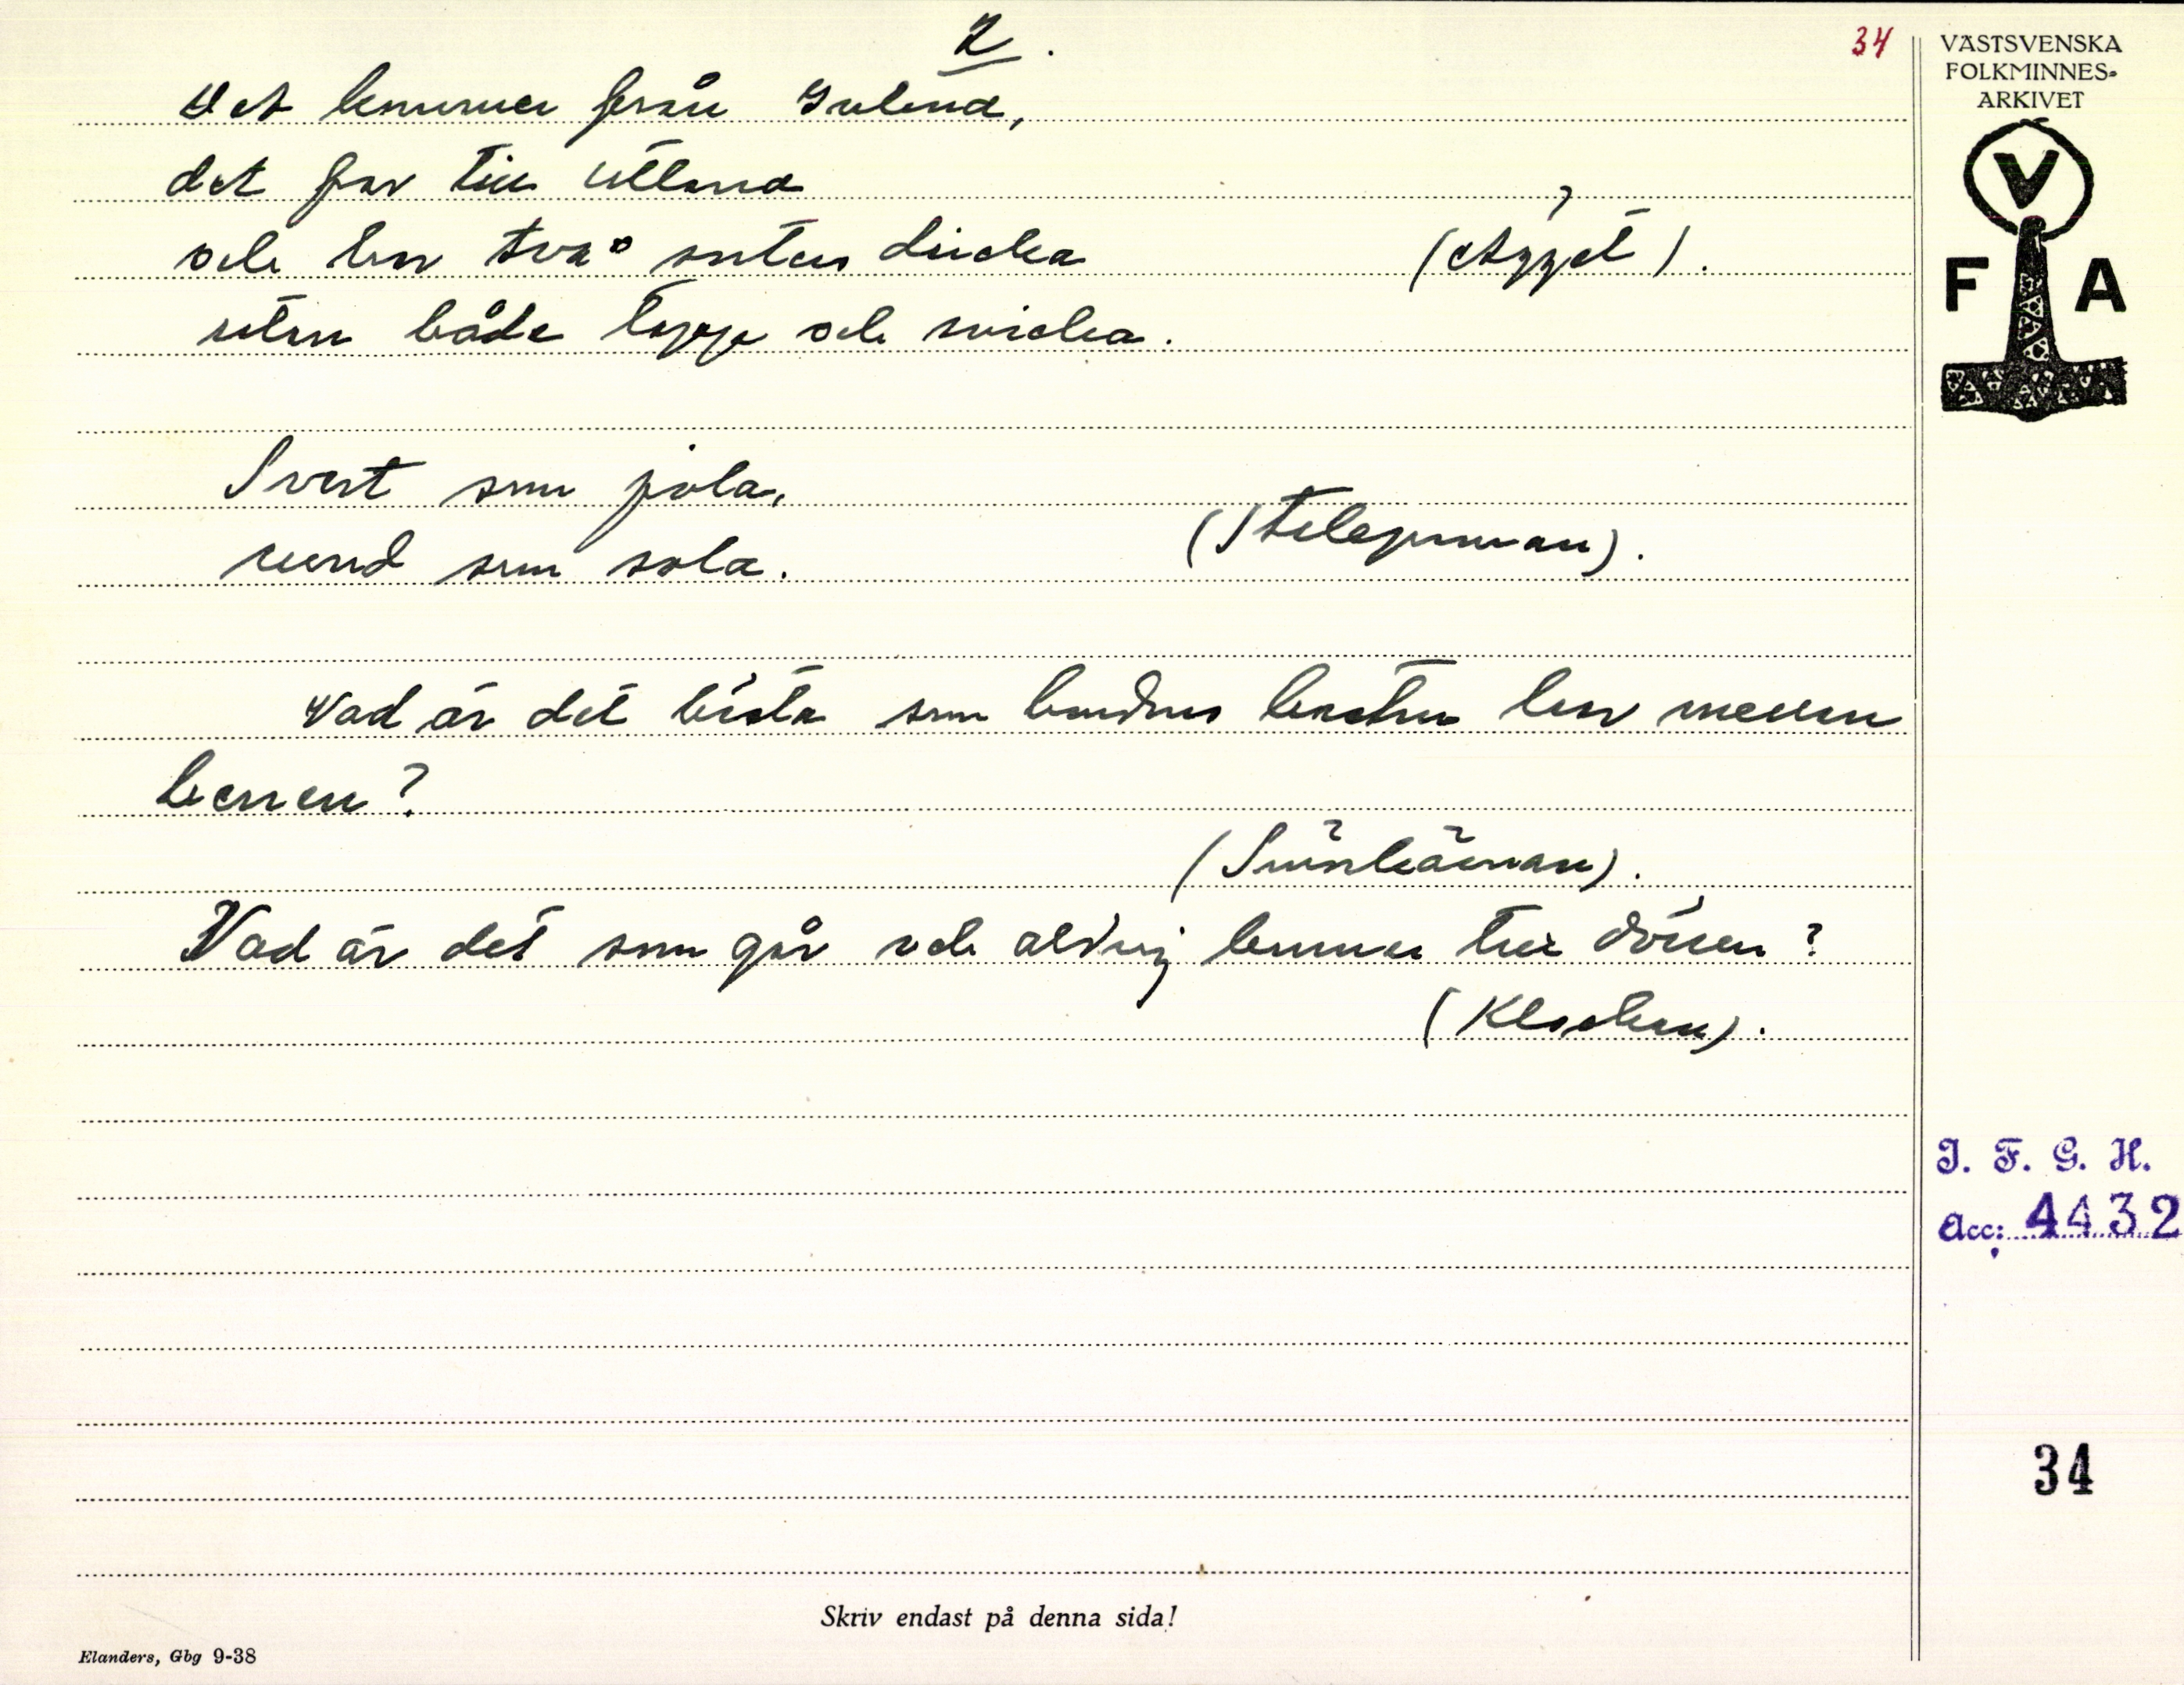 2.
34
Det kommer från Inland,
det far till utland
och har två sorters dricka
utan både tapp och svicka.
(Ägget).
Svart som jola,
rund som sola.
(Stekepannan).
Vad är det bästa som bondens hustru har mellan
benen?
(Smörkärnan).
Vad är det som går och aldrig kommer till dörren?
(Klockan).
VÄSTSVENSKA
FOLKMINNES-
ARKIVET
V
F A
I. F. G. H.
Acc: 4432
34
Skriv endast på denna sida!
Elanders, Gbg 9-38